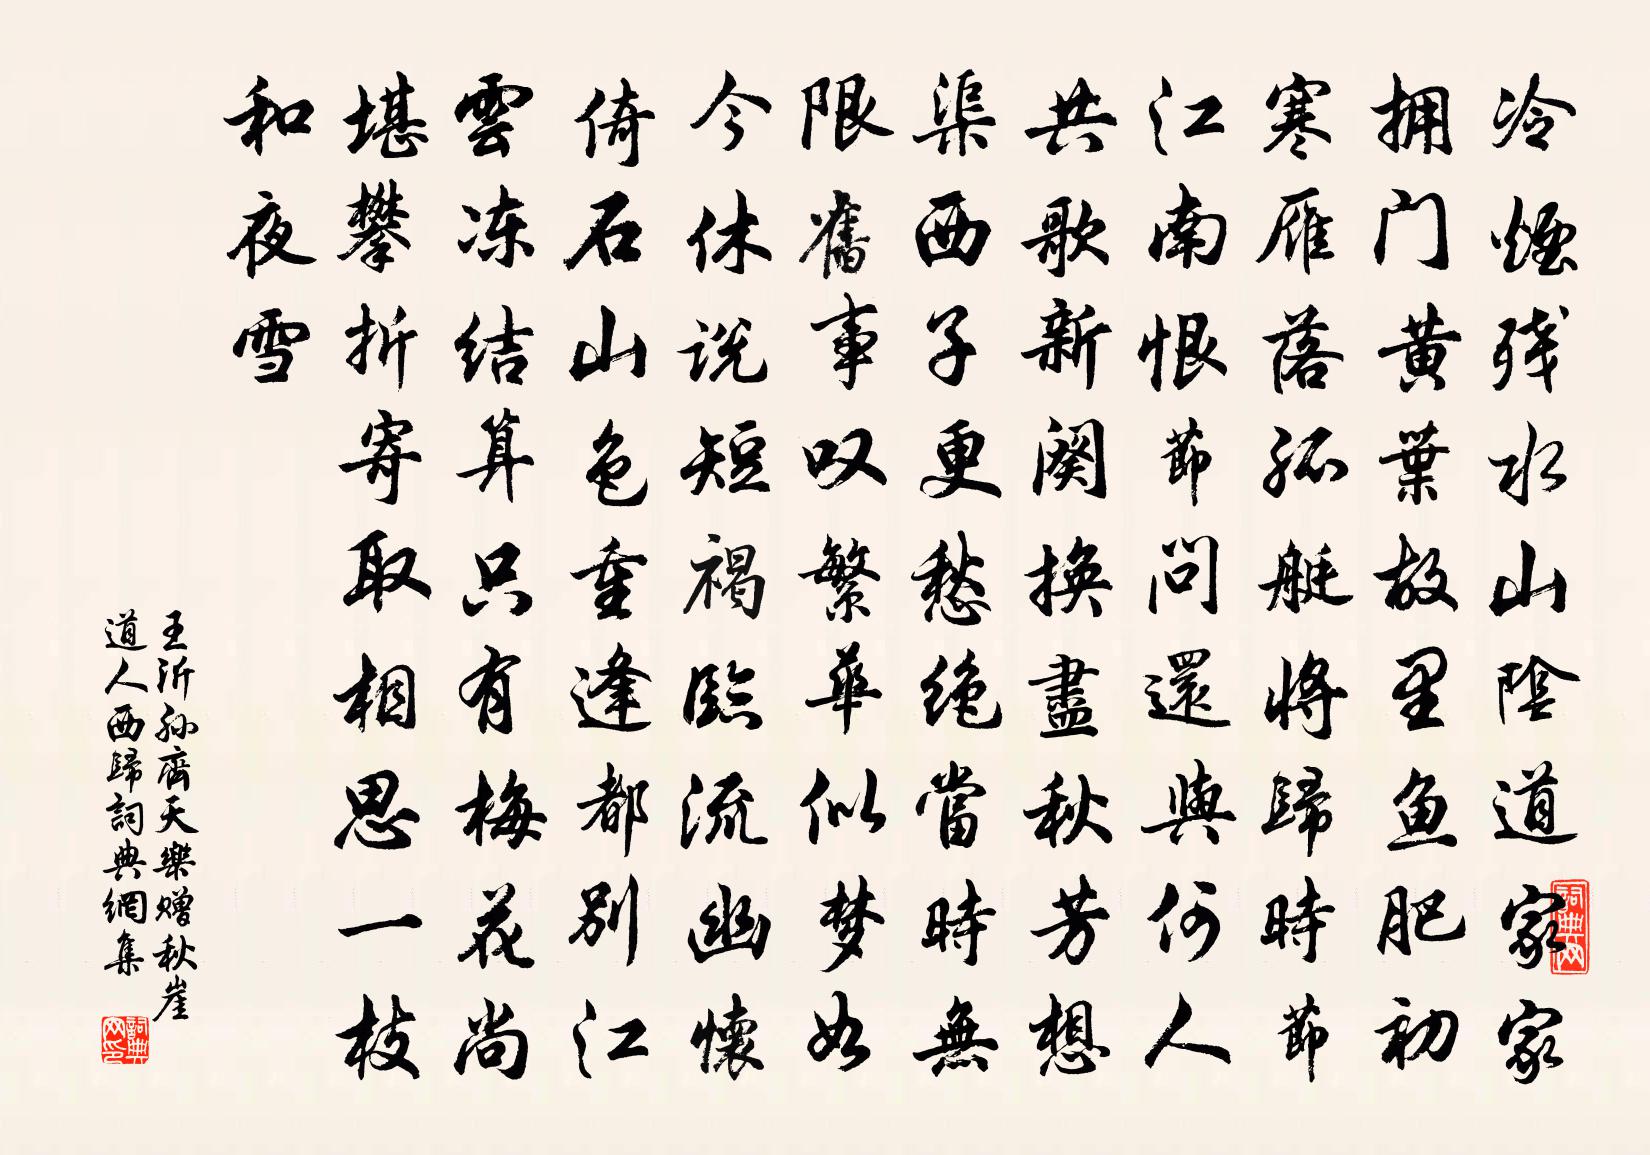 冷煙残水山陰道家家
拥门黄葉故里鱼肥初
寒雁落孤艇将歸時節
江南恨節問還與何人
共歌新闋換盡秋芳想
渠西子更愁绝當時無
限舊事叹繁華似梦如
今休说短褐临流幽懷
倚石山色重逢都别江
雲冻结算只有梅花尚
堪攀折寄取相思一枝
和夜雪
王沂孙齊天樂赠秋崖
道人西歸詞典網集
詞典网
詞典网印